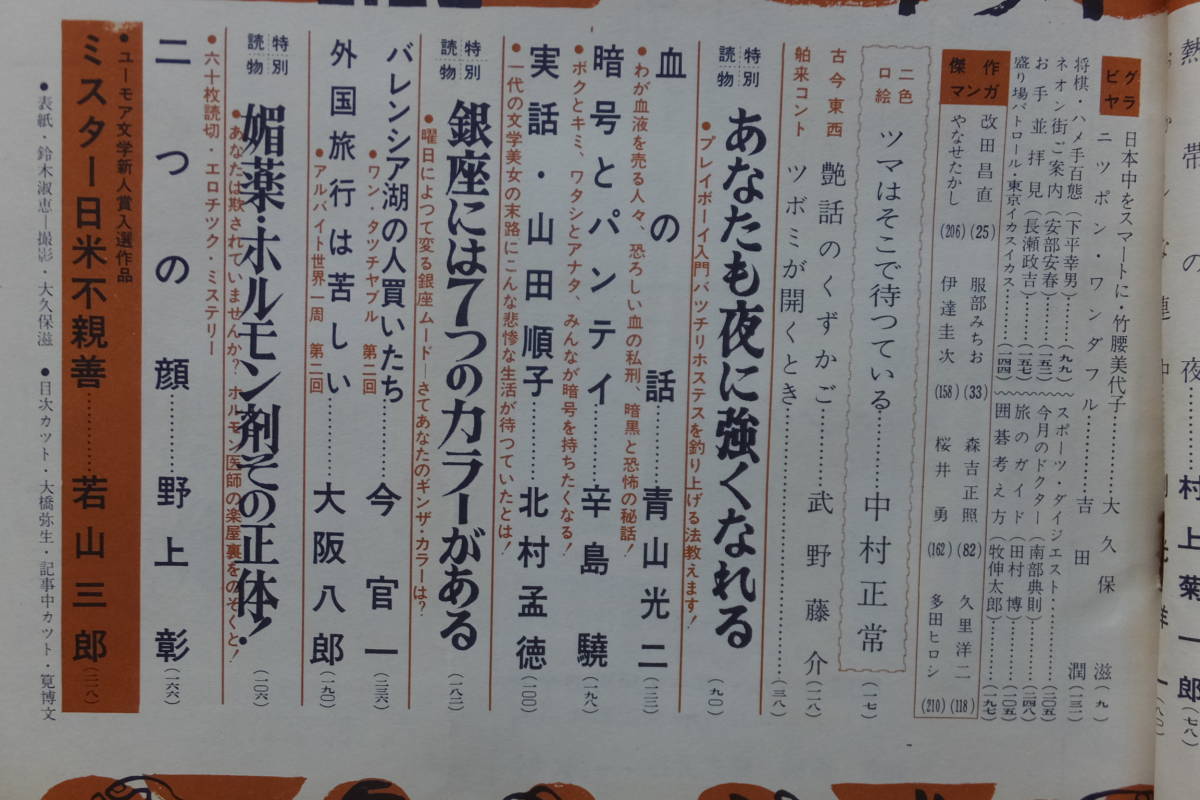 村上菊一郎(七八)
ビグ
ヤラ
日本中をスマートに・竹腰美代子……大久保 滋(九)
ニツポン・ワンダフル……吉田 潤(一三一)
将棋・ハメ手百態(下平幸男)……(九九)
ネオン街ご案内(安部安春)……(一五二)
お手並拝見(長瀬政吉)……(一五七)
盛り場パトロール・東京イカスイカス……(一四四)
スポーツ・ダイジエスト……(二〇五)
今月のドクター(南部典則)……(二四八)
旅のガイド(田村 博)……(一〇五)
囲碁考え方(牧伸太郎)……(一九七)
傑作
マンガ
改田昌直(25) 服部みちお(33) 森吉正照(82) 久里洋二(118)
やなせたかし(206) 伊達圭次(158) 桜井 勇(162) 多田ヒロシ(210)
二色
口絵
ツマはそこで待つている……中村正常(一七)
古今東西 艶話のくずかご……武野藤介(一二八)
舶来コント ツボミが開くとき……(三八)
特別
読物
あなたも夜に強くなれる(九〇)
●プレイボーイ入門、バツチリホステスを釣り上げる法教えます!
血の話……青山光二(一二二)
●わが血液を売る人々、恐ろしい血の私刑、暗黒と恐怖の秘話!
暗号とパンテイ……辛島 驍(一九八)
●ボクとキミ、ワタシとアナタ、みんなが暗号を持ちたくなる!
実話・山田順子……北村孟徳(一〇〇)
●一代の文学美女の末路にこんな悲惨な生活が待つていたとは!
特別
読物
銀座には7つのカラーがある(一八二)
●曜日によつて変る銀座ムード さてあなたのギンザ・カラーは?
バレンシア湖の人買いたち……今 官一(二三六)
●ワン・タツチヤブル 第二回
外国旅行は苦しい……大阪八郎(一九〇)
●アルバイト世界一周 第二回
特別
読物
媚薬・ホルモン剤その正体!(一〇六)
●あなたは欺されていませんか? ホルモン医師の楽屋裏をのぞくと!
●六十枚読切・エロチツク・ミステリー
二つの顔……野上 彰(一六六)
●ユーモア文学新人賞入選作品
ミスター日米不親善……若山三郎(二一八)
●表紙・鈴木淑恵―撮影・大久保滋 ●目次カツト・大橋弥生・記事中カツト・筧博文